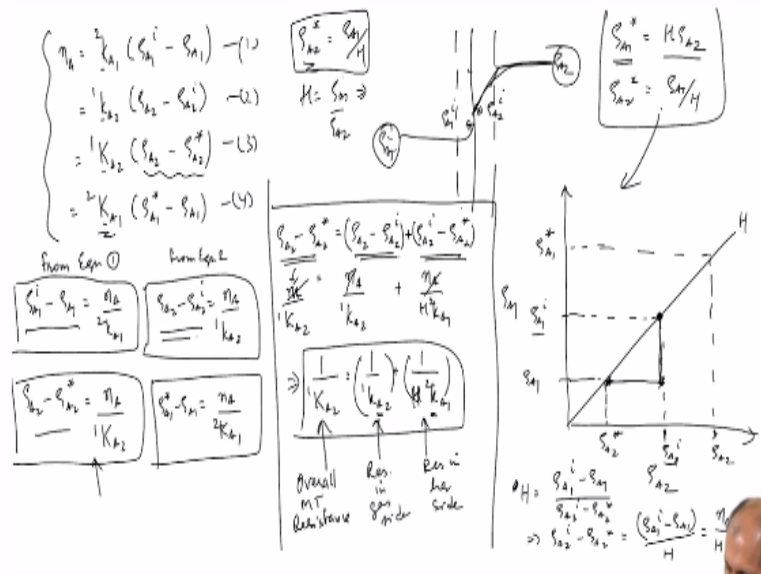 n_A = ²k_A1 (ρ_A1^i − ρ_A1) −(1)
= ¹k_A2 (ρ_A2 − ρ_A2^i) −(2)
= ¹K_A2 (ρ_A2 − ρ_A2^*) −(3)
= ²K_A1 (ρ_A1^* − ρ_A1) −(4)
from Eqn ①
ρ_A1^i − ρ_A1 = n_A / ²k_A1
from Eqn 2
ρ_A2 − ρ_A2^i = n_A / ¹k_A2
ρ_A2 − ρ_A2^* = n_A / ¹K_A2
ρ_A1^* − ρ_A1 = n_A / ²K_A1
ρ_A2^* = ρ_A1 / H
H = ρ_A1 / ρ_A2 ⇒
ρ_A1^i
ρ_A2^i
ρ_A2
ρ_A1^* = H ρ_A2
ρ_A2^* = ρ_A1 / H
ρ_A2 − ρ_A2^* = (ρ_A2 − ρ_A2^i) + (ρ_A2^i − ρ_A2^*)
n_A / ¹K_A2 = n_A / ¹k_A2 + n_A / H ²k_A1
⇒ 1 / ¹K_A2 = (1 / ¹k_A2) + (1 / H ²k_A1)
Overall
MT
Resistance
Res.
in
gas
side
Res in
side
H
ρ_A1^*
ρ_A1
ρ_A1^i
ρ_A1
ρ_A2^*
ρ_A2^i
ρ_A2
ρ_A2
H = (ρ_A1^i − ρ_A1) / (ρ_A2^i − ρ_A2^*)
⇒ ρ_A2^i − ρ_A2^* = (ρ_A1^i − ρ_A1) / H =